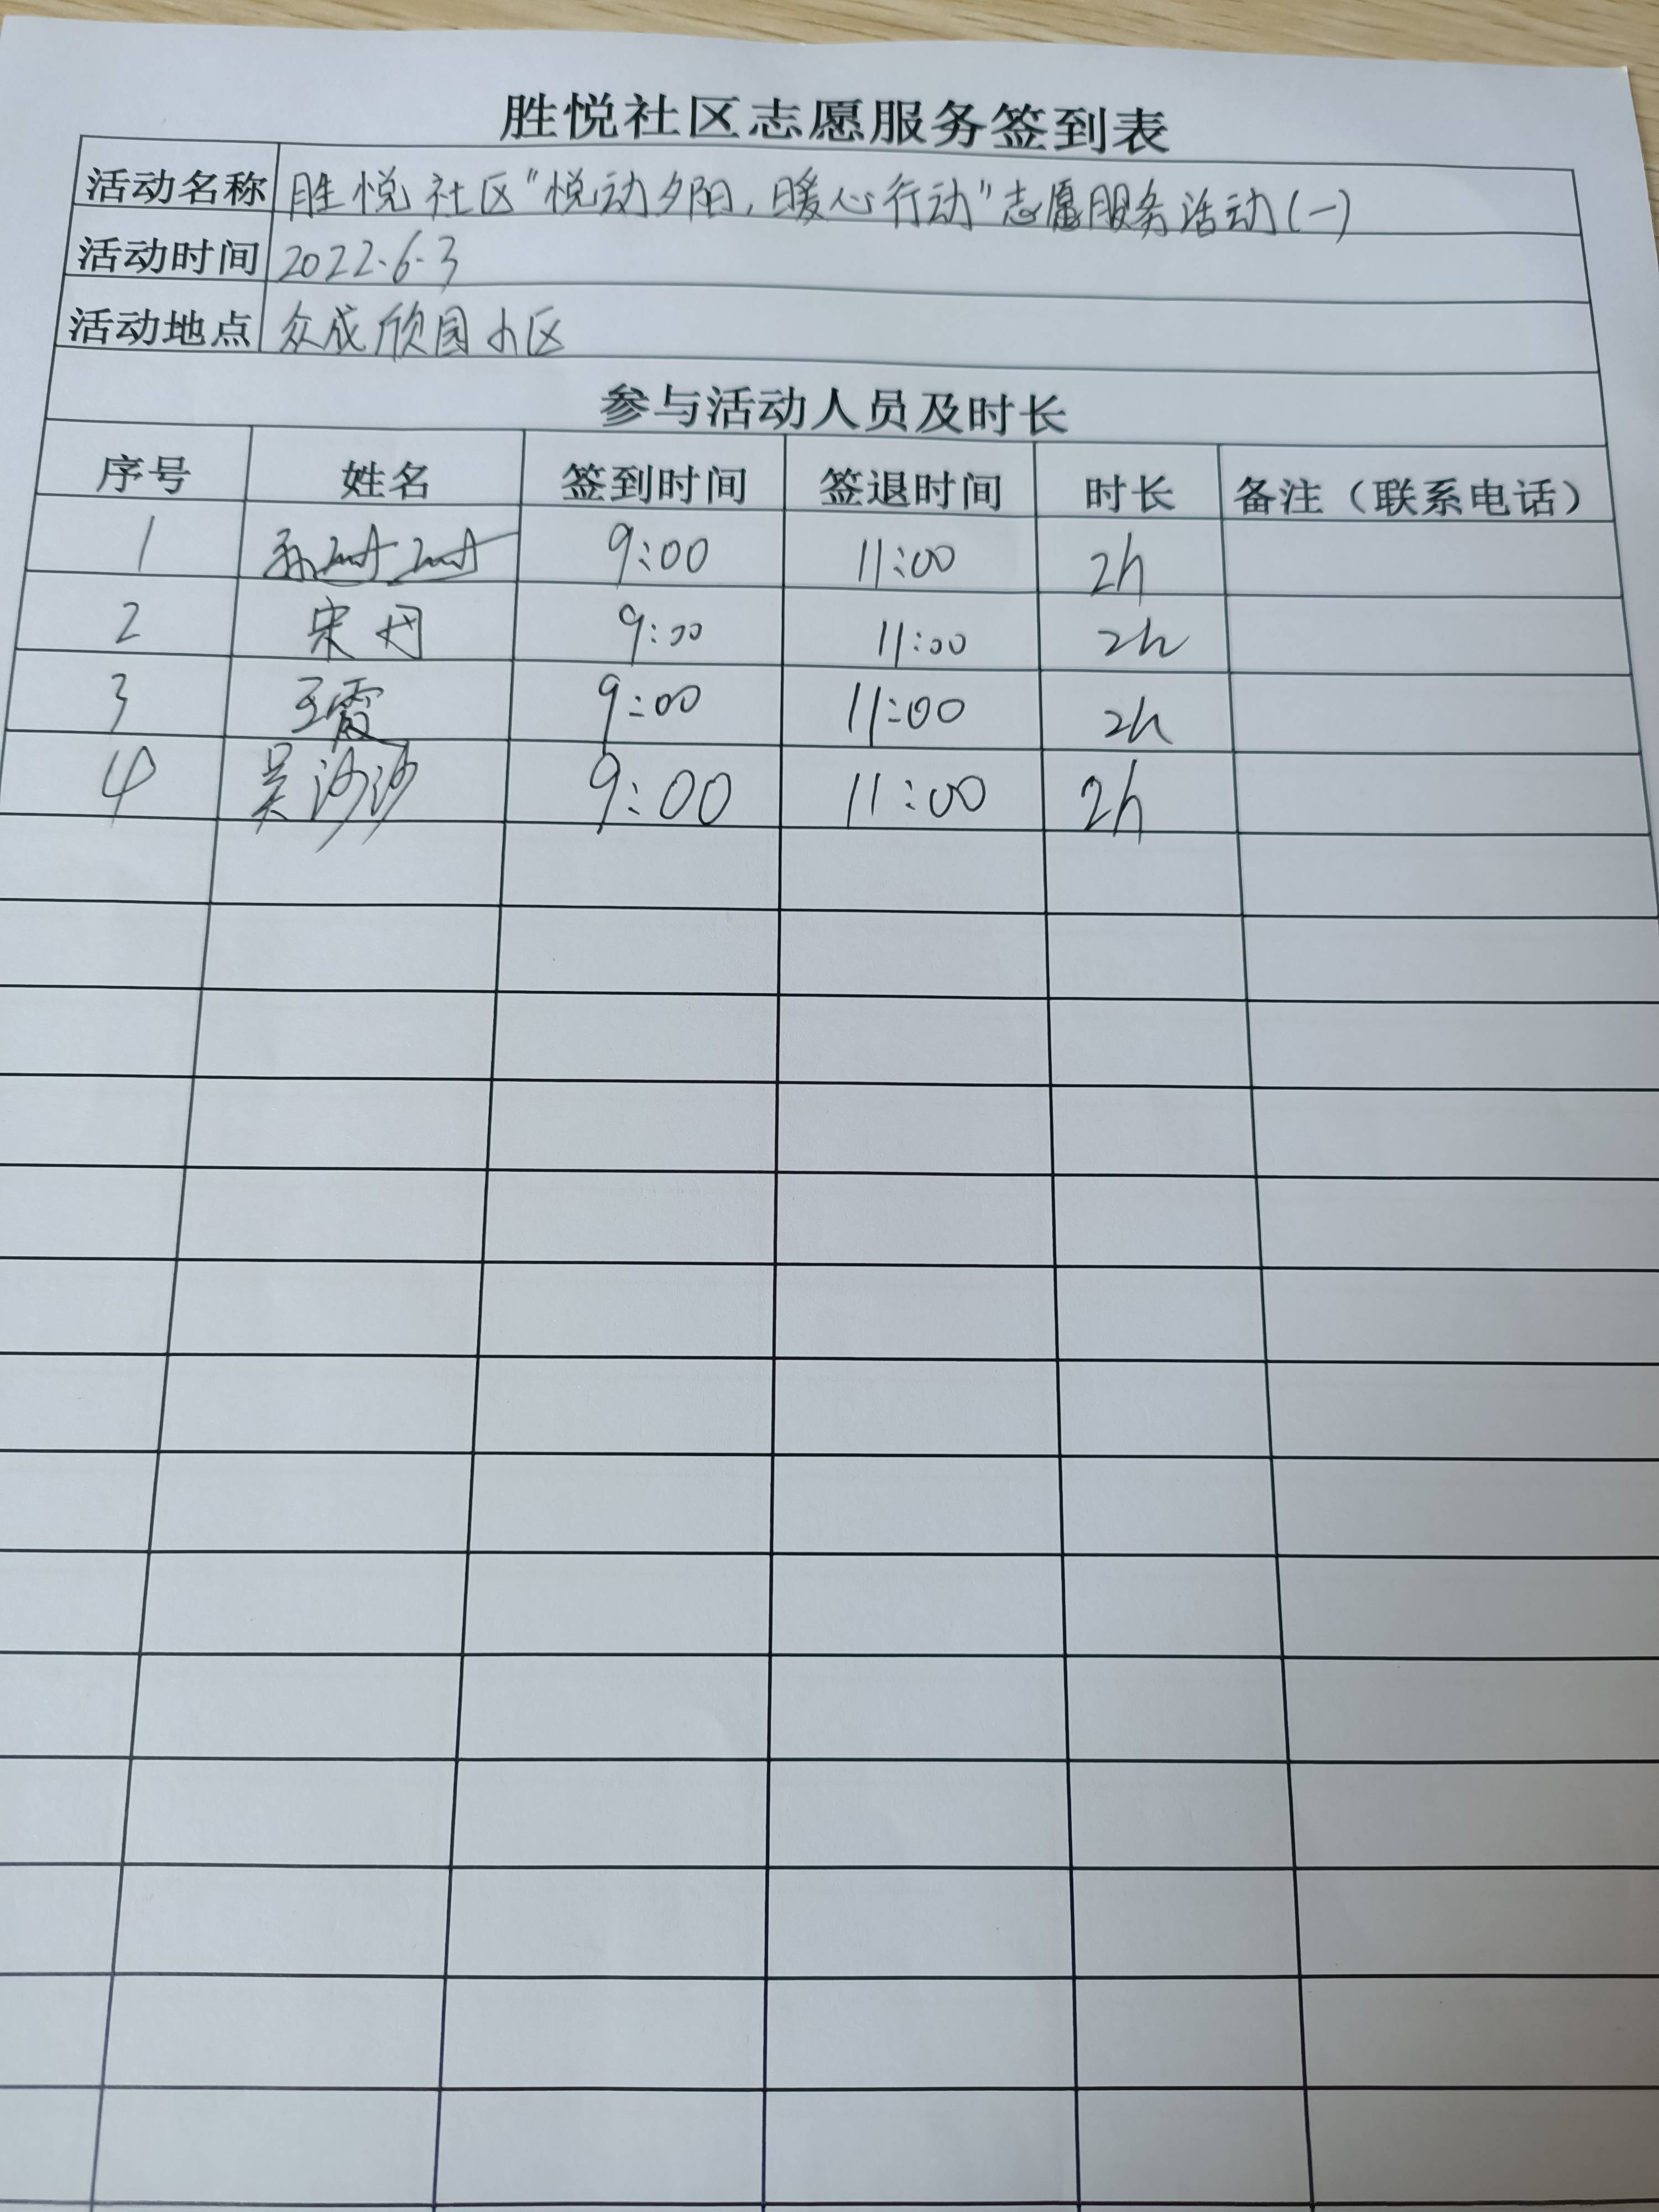 胜悦社区志愿服务签到表
活动名称 胜悦社区"悦动夕阳,暖心行动"志愿服务活动(一)
活动时间 2022.6.3
活动地点 众成欣园小区
参与活动人员及时长
序号 姓名 签到时间 签退时间 时长 备注（联系电话）
1 9:00 11:00 2h
2 宋丹 9:00 11:00 2h
3 王霞 9:00 11:00 2h
4 吴沙沙 9:00 11:00 2h